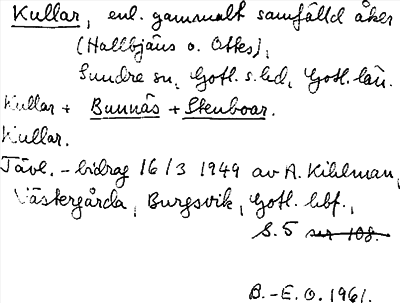 Kullar, enl. gammalt samfälld åker
(Hallbjäns o. Ottes),
Sundre sn, Gotl. s. hd, Gotl. län.
Kullar + Bunnäs + Stenboar.
Kullar.
Tävl.-bidrag 16/3 1949 av A. Kihlman,
Västergårda, Burgsvik, Gotl. hbf.,
S. 5 ser 108.
B.-E. O. 1961.